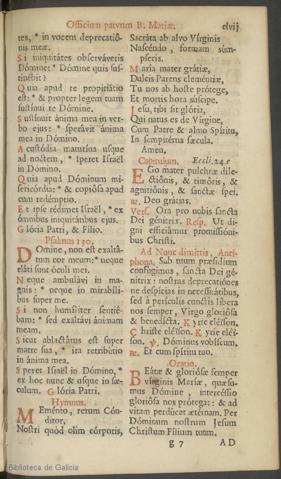 Officium parvum B. Mariæ. clvij
tes, * in vocem deprecatiõ-
nis meæ.
Si iniquitátes observáveris
Dómine: * Dómine quis sus-
tinébit?
Quia apud te propitiátio
est: * & propter legem tuam
sustínui te Dómine.
Sustínuit ánima mea in ver-
bo ejus: * sperávit ánima
mea in Dómino.
A custódia matutína usque
ad noctem, * speret Israël
in Dómino.
Quia apud Dóminum mi-
sericórdia: * & copiósa apud
eum redémptio.
Et ipse rédimet Israël, * ex
ómnibus iniquitátibus ejus.
Glória Patri, & Filio.
Psalmus 130.
Domine, non est exaltá-
tum cor meum: * neque
eláti sunt óculi mei.
Neque ambulávi in ma-
gnis: * neque in mirabíli-
bus super me.
Si non humíliter sentié-
bam: * sed exaltávi ánimam
meam.
Sicut ablactátus est super
matre sua, * ita retribútio
in ánima mea.
Speret Israël in Dómino, *
ex hoc nunc & usque in sæ-
culum. Glória Patri.
Hymnus.
Meménto, rerum Cón-
ditor,
Nostri quòd olim córporis,
Sacráta ab alvo Vírginis
Nascéndo, formam súm-
pseris.
María mater grátiæ,
Dulcis Parens cleméntiæ,
Tu nos ab hoste prótege,
Et mortis hora súscipe.
Jesu, tibi sit glória,
Qui natus es de Vírgine,
Cum Patre & almo Spíritu,
In sempitérna sæcula.
Amen.
Capitulum. Eccli. 24.c
Ego mater pulchræ dile-
ctiónis, & timóris, &
agnitiónis, & sanctæ spei.
℟. Deo grátias.
Vers. Ora pro nobis sancta
Dei génitrix. Resp. Ut di-
gni efficiámur promissióni-
bus Christi.
Ad Nunc dimittis, Anti-
phona. Sub tuum præsídium
confúgimus, sancta Dei gé-
nitrix: nostras deprecatiónes
ne despícias in necessitátibus,
sed à perículis cunctis líbera
nos semper, Virgo gloriósa
& benedícta. Kyrie eléison.
Christe eléison. Kyrie eléi-
son. ℣. Dóminus vobíscum.
℟. Et cum spíritu tuo.
Oratio.
Beátæ & gloriósæ semper
vírginis Maríæ, quæsu-
mus Dómine, intercéssio
gloriósa nos prótegat: & ad
vitam perdúcat ætérnam. Per
Dóminum nostrum Jesum
Christum Fílium tuum.
g 7 AD
Biblioteca de Galicia